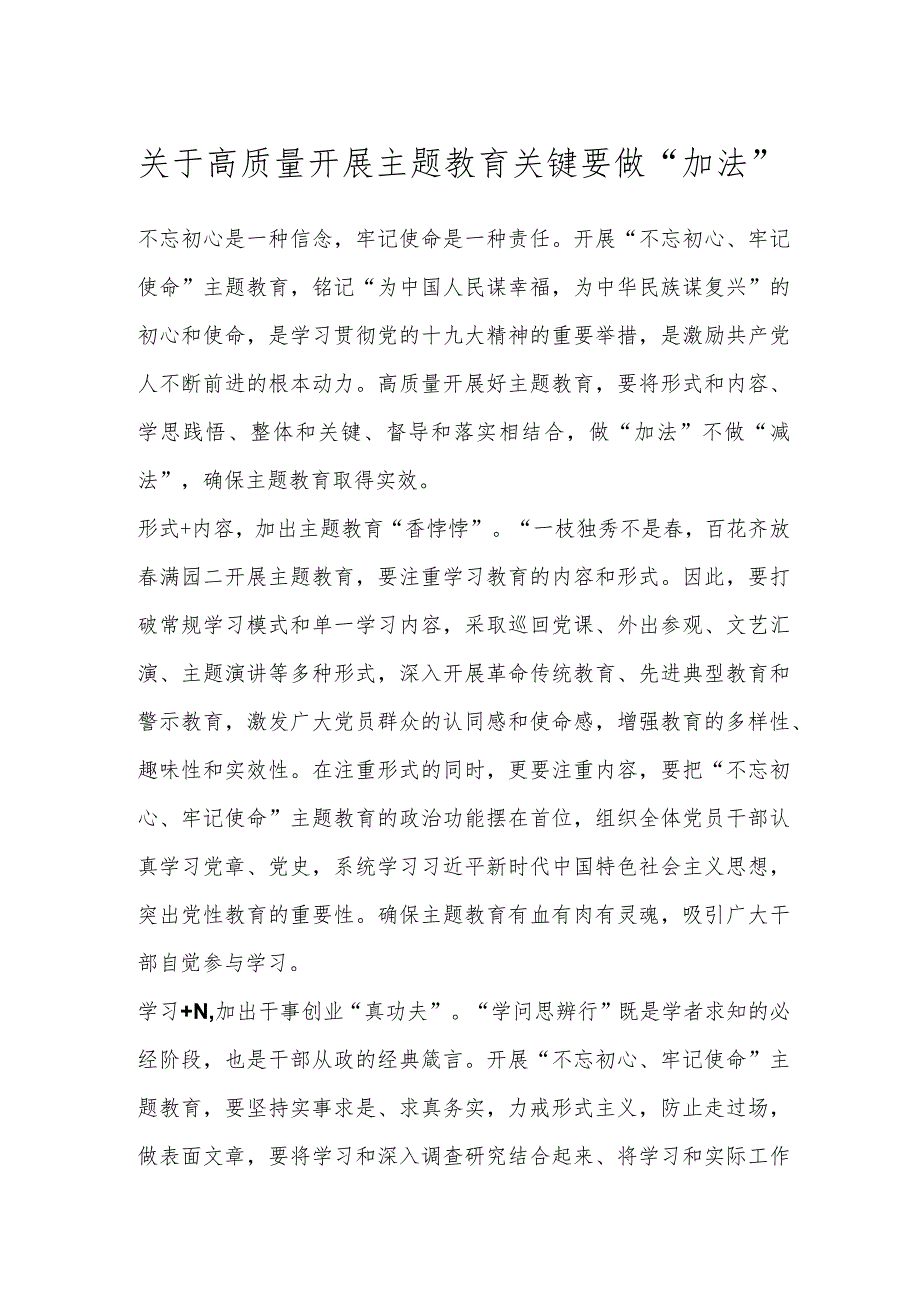 关于高质量开展主题教育关键要做“加法”
不忘初心是一种信念，牢记使命是一种责任。开展“不忘初心、牢记
使命”主题教育，铭记“为中国人民谋幸福，为中华民族谋复兴”的
初心和使命，是学习贯彻党的十九大精神的重要举措，是激励共产党
人不断前进的根本动力。高质量开展好主题教育，要将形式和内容、
学思践悟、整体和关键、督导和落实相结合，做“加法”不做“减
法”，确保主题教育取得实效。
形式+内容，加出主题教育“香悖悖”。“一枝独秀不是春，百花齐放
春满园二开展主题教育，要注重学习教育的内容和形式。因此，要打
破常规学习模式和单一学习内容，采取巡回党课、外出参观、文艺汇
演、主题演讲等多种形式，深入开展革命传统教育、先进典型教育和
警示教育，激发广大党员群众的认同感和使命感，增强教育的多样性、
趣味性和实效性。在注重形式的同时，更要注重内容，要把“不忘初
心、牢记使命”主题教育的政治功能摆在首位，组织全体党员干部认
真学习党章、党史，系统学习习近平新时代中国特色社会主义思想，
突出党性教育的重要性。确保主题教育有血有肉有灵魂，吸引广大干
部自觉参与学习。
学习+N,加出干事创业“真功夫”。“学问思辨行”既是学者求知的必
经阶段，也是干部从政的经典箴言。开展“不忘初心、牢记使命”主
题教育，要坚持实事求是、求真务实，力戒形式主义，防止走过场，
做表面文章，要将学习和深入调查研究结合起来、将学习和实际工作